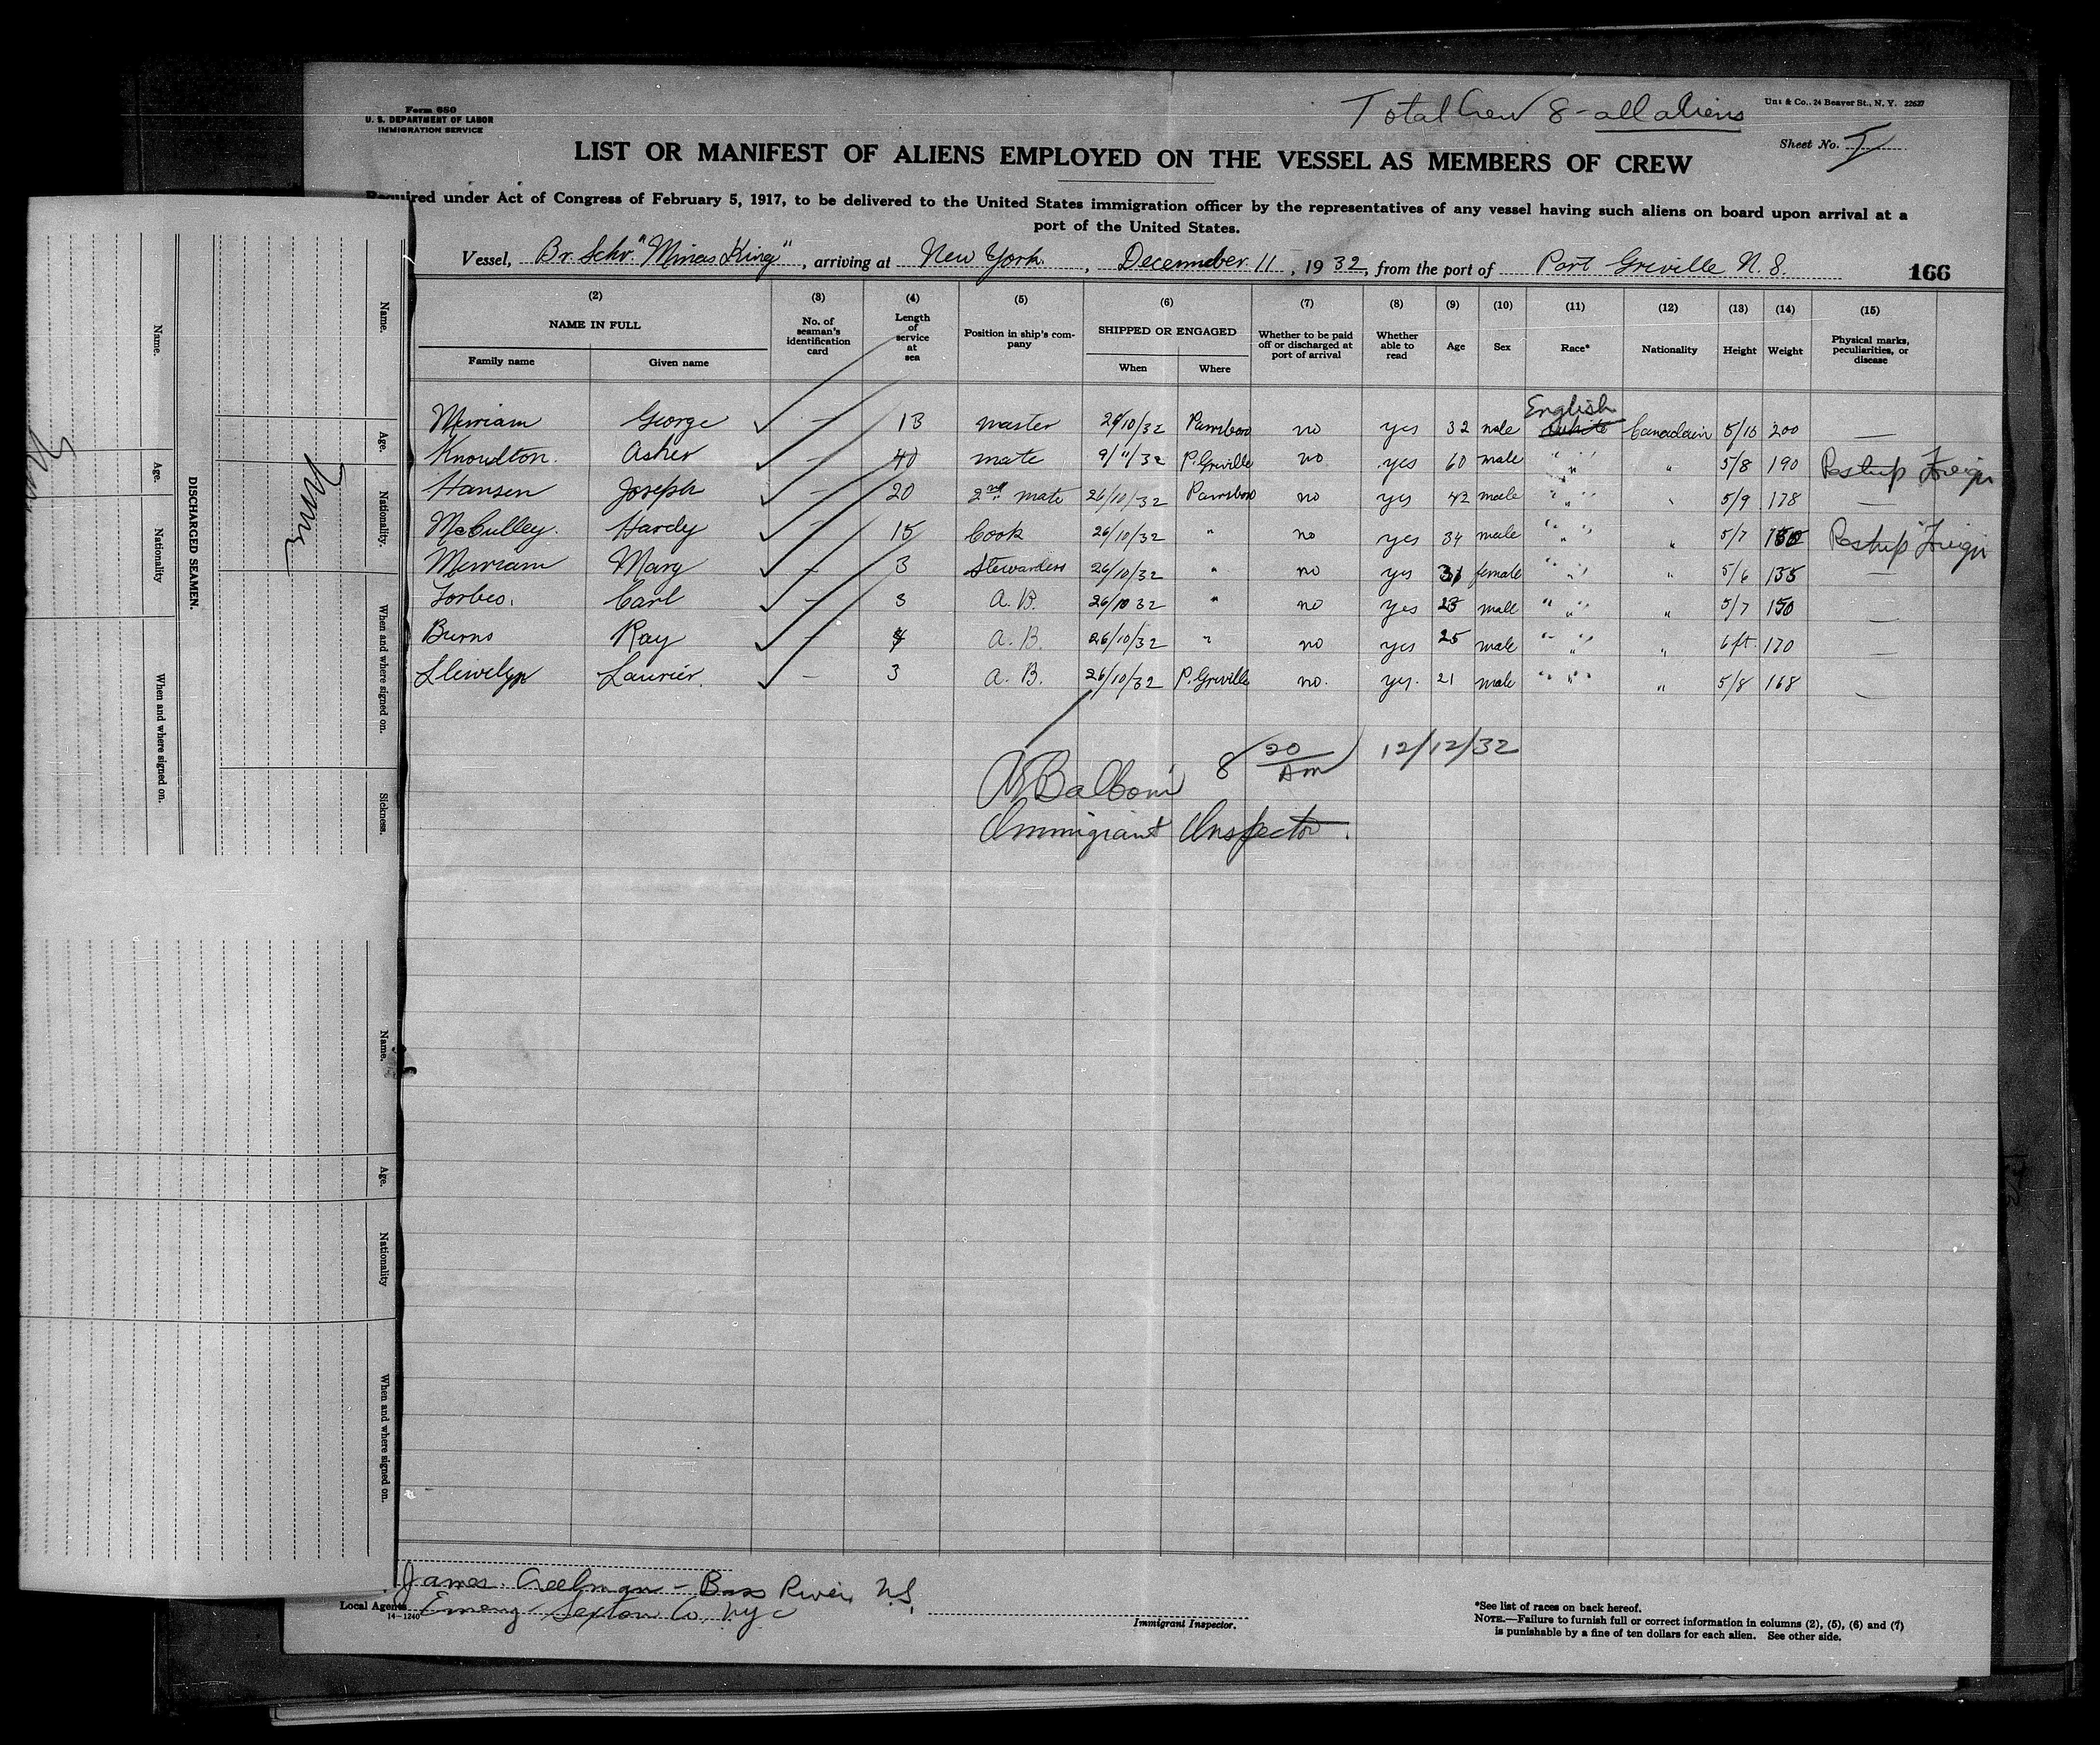 Form 680
U. S. DEPARTMENT OF LABOR
IMMIGRATION SERVICE
Total Crew 8 - all aliens
& Co., 24 Beaver St., N. Y. 22627
Sheet No. I
LIST OR MANIFEST OF ALIENS EMPLOYED ON THE VESSEL AS MEMBERS OF CREW
Required under Act of Congress of February 5, 1917, to be delivered to the United States immigration officer by the representatives of any vessel having such aliens on board upon arrival at a
port of the United States.
Vessel, Br. Schr. "Minas King", arriving at New York, Decemeber 11, 1932, from the port of Port Greville N.S.
166
(2) (3) (4) (5) (6) (7) (8) (9) (10) (11) (12) (13) (14) (15)
NAME IN FULL No. of seaman's identification card Length of service at sea Position in ship's company SHIPPED OR ENGAGED Whether to be paid off or discharged at port of arrival Whether able to read Age Sex Race* Nationality Height Weight Physical marks, peculiarities, or disease
Family name Given name When Where
English
Merriam George ✓ — 13 master 29/10/32 Parrsboro no yes 32 male White Canadain 5/10 200 —
Knowlton. Asher ✓ — 40 mate 9/11/32 P. Greville no yes 60 male " " " 5/8 190 Reship Foreign
Hansen Joseph ✓ — 20 2nd mate 26/10/32 Parrsboro no yes 42 male " " " 5/9 178 —
McCulley. Hardy ✓ — 15 Cook 26/10/32 " no yes 34 male " " " 5/7 150 Reship Foreign
Merriam Mary ✓ — 3 Stewardess 26/10/32 " no yes 31 female " " " 5/6 135 —
Forbes. Carl ✓ — 3 A. B. 26/10 32 " no yes 23 male " " " 5/7 150 —
Burns Ray ✓ — 4 A. B. 26/10/32 " no yes 25 male " " " 6 ft. 170 —
Llewelyn Laurier. ✓ — 3 A. B. 26/10/32 P. Greville no. yes. 21 male " " " 5/8 168 —
Balboni 8 20 AM 12/12/32
Immigrant Inspector.
DISCHARGED SEAMEN.
Name.
Age.
Nationality
When and where signed on.
Name.
Age.
Nationality.
When and where signed on.
Sickness.
None
Name.
Age.
Nationality
When and where signed on.
James Creelman - Bass River N.S.
Local Agents Emeny Sexton Co. NYC
14—1240
Immigrant Inspector.
*See list of races on back hereof.
NOTE.—Failure to furnish full or correct information in columns (2), (5), (6) and (7)
is punishable by a fine of ten dollars for each alien. See other side.